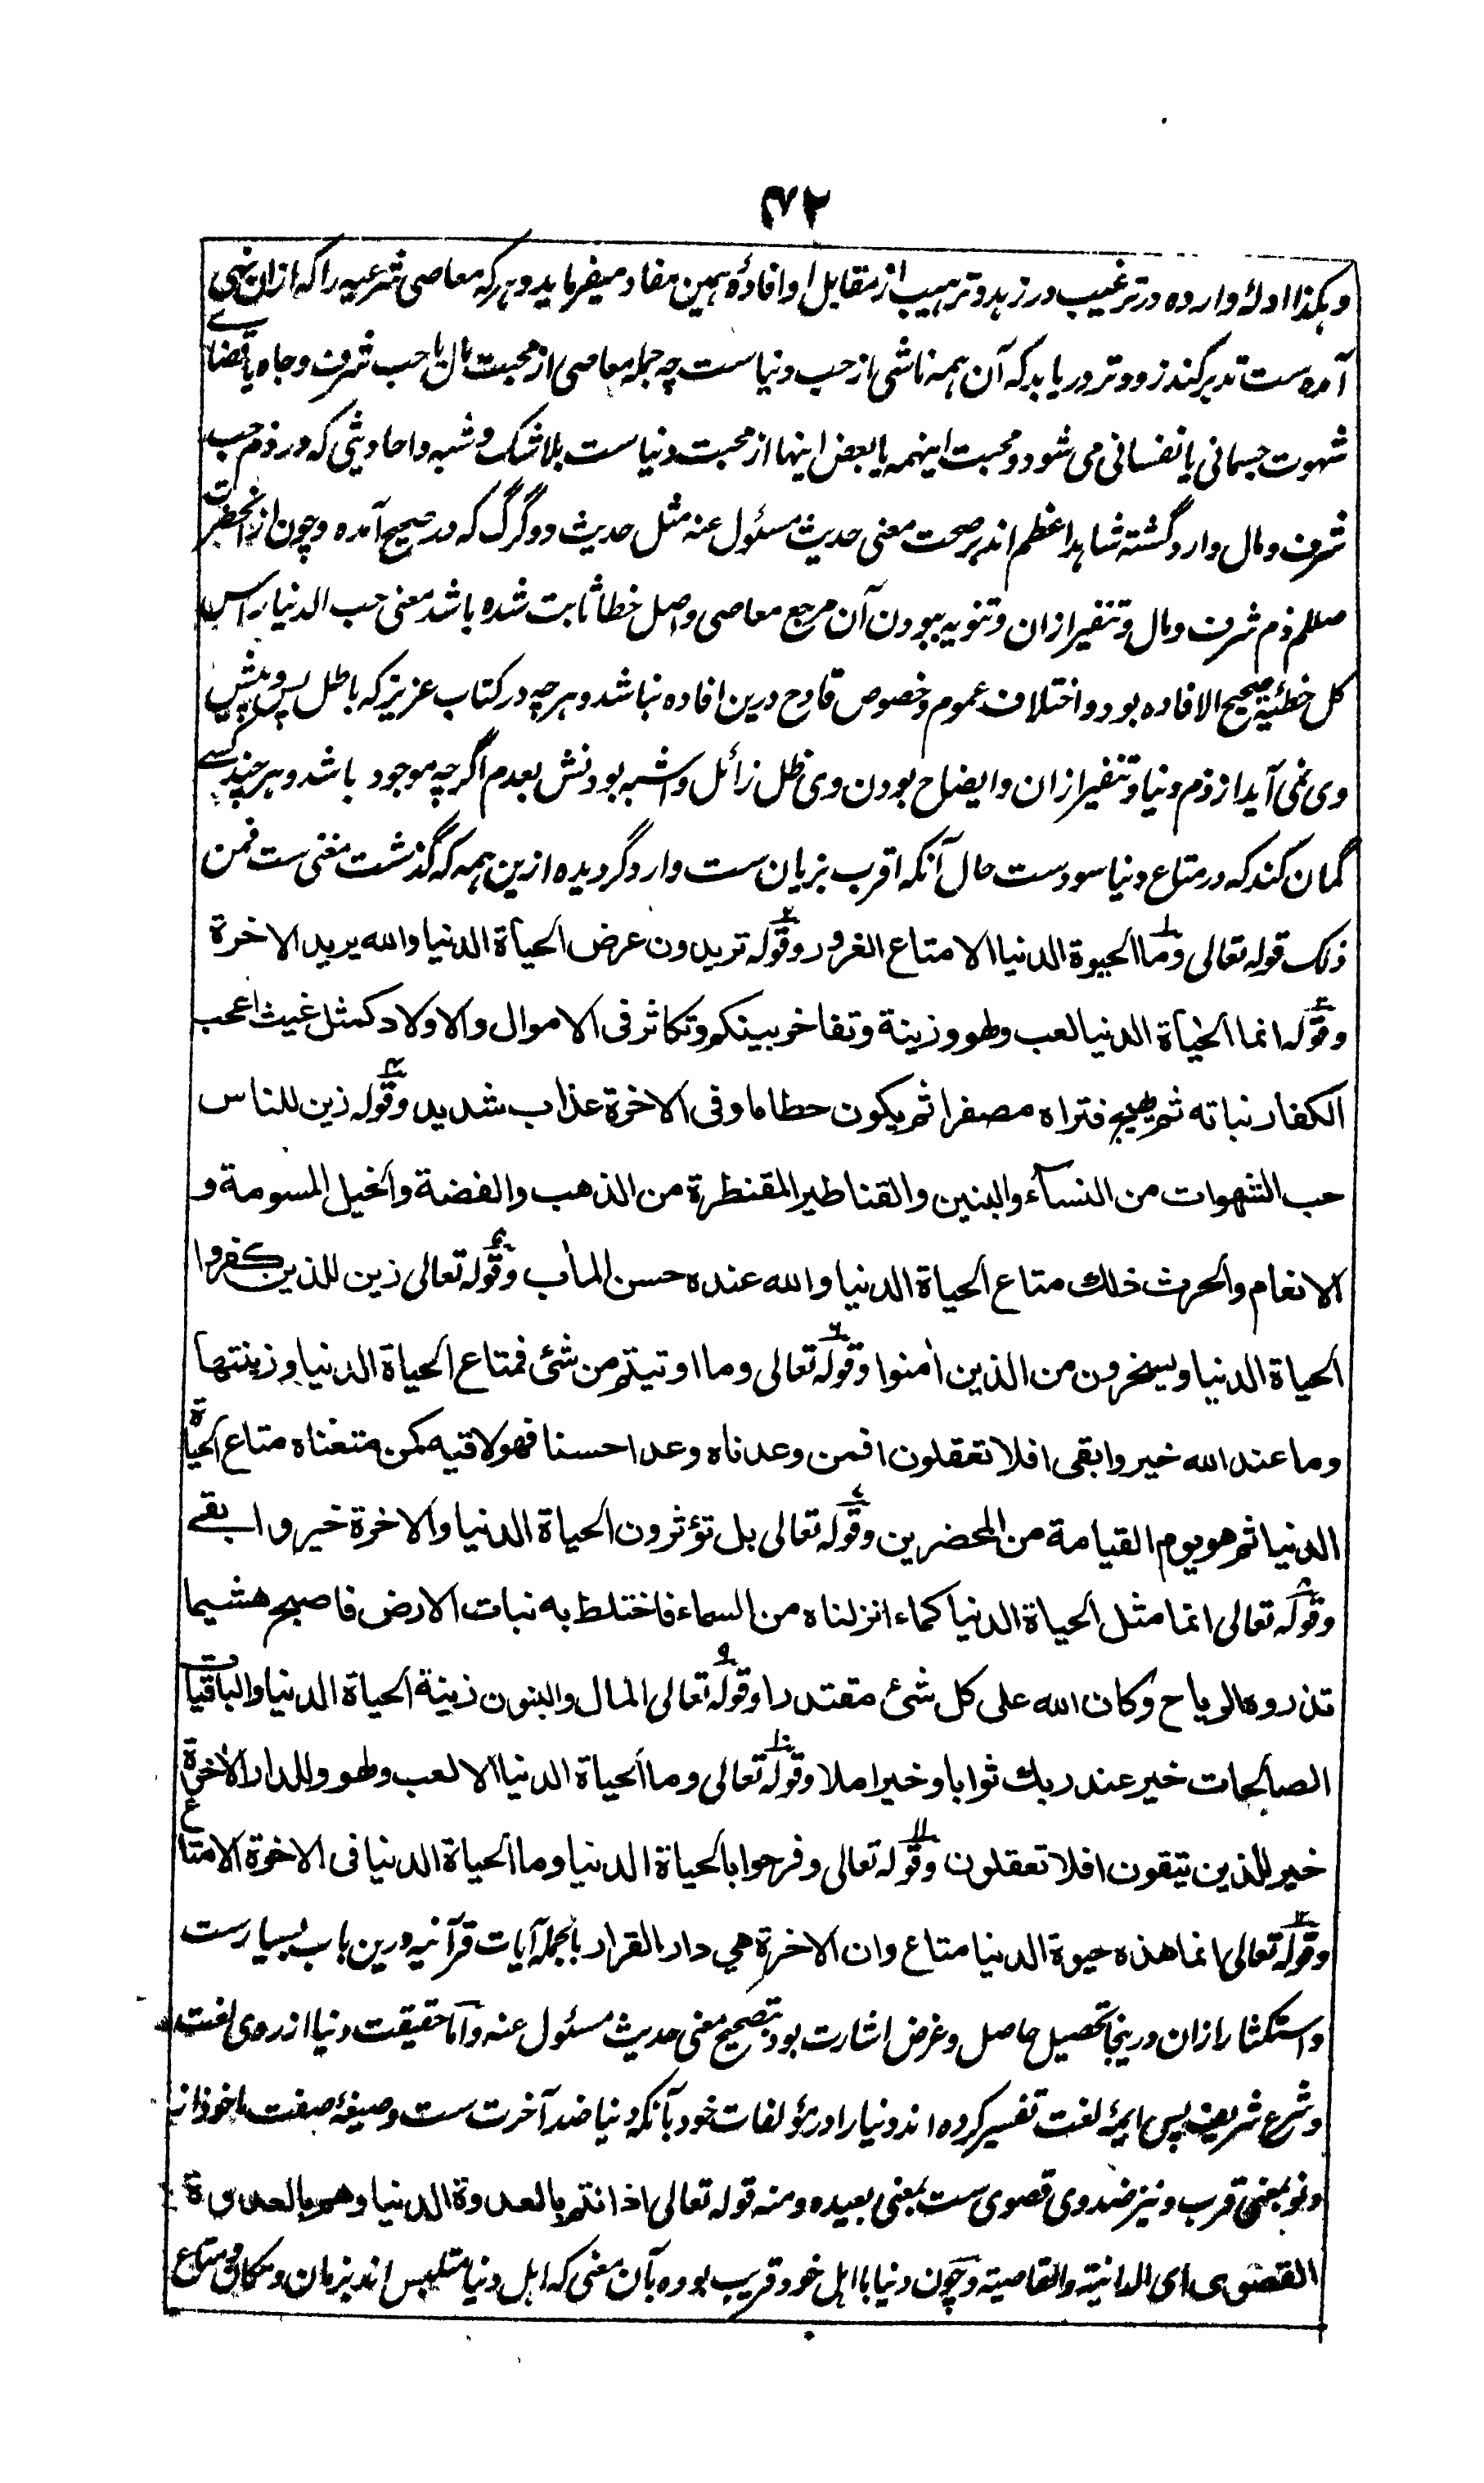 ۴۷۲
وهکذا ادلهٔ وارده در ترغیب در زهد و ترهیب از مقابل او افادهٔ همین مفاد میفرماید و هرکه معاصی شرعیه را که ازان نهی
آمده ست تدبر کند زودتر دریابد که آن همه ناشی از حب دنیاست چه جمله معاصی از محبت مال یا حب شرف و جاه یا قضای
شهوت جسمانی یا نفسانی می شود و محبت اینهمه یا بعض اینها از محبت دنیاست بلا شک و شبه و احادیثی که در ذم حب
شرف و مال وارد گشته شاهد اعظم اند بر صحت معنی حدیث مسئول عنه مثل حدیث دو گرگ که در صحیح آمده و چون از آنحضرت
صللم ذم شرف و مال و تنفیر ازان و تنویه ببودن آن مرجع معاصی و اصل خطا ثابت شده باشد معنی حب الدنیا راس
کل خطیئة صحیح الافاده بود و اختلاف عموم و خصوص قادح درین افاده نباشد و هرچه در کتاب عزیز که باطل پس و پیش
وی نمی آید از ذم دنیا و تنفیر ازان و ایضاح بودن وی ظل زائل و اشبه بودنش بعدم اگرچه موجود باشد و هرچند کسے
گمان کند که در متاع دنیا سودست حال آنکه اقرب بزیان ست وارد گردیده ازین همه که گذشت مغنی ست فمن
ذلک قوله تعالی وما الحیوة الدنیا الا متاع الغرور وقوله تریدون عرض الحیاة الدنیا والله یرید الاخرة
وقوله انما الحیاة الدنیا لعب ولهو وزینة وتفاخر بینکم وتکاثر فی الاموال والاولاد کمثل غیث اعجب
الکفار نباته ثم یهیج فتراه مصفرا ثم یکون حطاما وفی الاخرة عذاب شدید وقوله زین للناس
حب الشهوات من النسآء والبنین والقناطیر المقنطرة من الذهب والفضة والخیل المسومة و
الانعام والحرث ذلک متاع الحیاة الدنیا والله عنده حسن المأب وقوله تعالی زین للذین کفروا
الحیاة الدنیا ویسخرون من الذین اٰمنوا وقوله تعالی وما اوتیتم من شئ فمتاع الحیاة الدنیا وزینتها
وما عند الله خیر وابقی افلا تعقلون افمن وعدناه وعدا حسنا فهو لاقیه کمن متعناه متاع الحیاة
الدنیا ثم هو یوم القیامة من المحضرین وقوله تعالی بل تؤثرون الحیاة الدنیا والاخرة خیر وابقے
وقوله تعالی انما مثل الحیاة الدنیا کماء انزلناه من السماء فاختلط به نبات الارض فاصبح هشیما
تذروه الریاح وکان الله علی کل شئ مقتدرا وقوله تعالی المال والبنون زینة الحیاة الدنیا والباقیات
الصالحات خیر عند ربک ثوابا وخیر املا وقوله تعالی وما الحیاة الدنیا الا لعب ولهو وللدار الاخرة
خیر للذین یتقون افلا تعقلون وقوله تعالی وفرحوا بالحیاة الدنیا وما الحیاة الدنیا فی الاخرة الا متاع
وقوله تعالی انما هذه حیوة الدنیا متاع وان الاخرة هی دار القرار بالجمله آیات قرآنیه درین باب بسیارست
و استکثار ازان درینجا تحصیل حاصل و غرض اشارت بود بتصحیح معنی حدیث مسئول عنه و اما حقیقت دنیا از روی لغت
و شرع شریف پس ایمهٔ لغت تفسیر کرده اند دنیا را در مؤلفات خود بآنکه دنیا ضد آخرت ست و صیغهٔ صفت ماخوذ از
دنو بمعنی قرب و نیز ضد وی قصوی ست بمعنی بعیده ومنه قوله تعالی اذ انتم بالعدوة الدنیا وهم بالعدوة
القصوی ای الدانیة والقاصیة و چون دنیا با اهل خود قریب بوده بآن معنی که اهل دنیا متلبس اند بزمان و مکان و متاع